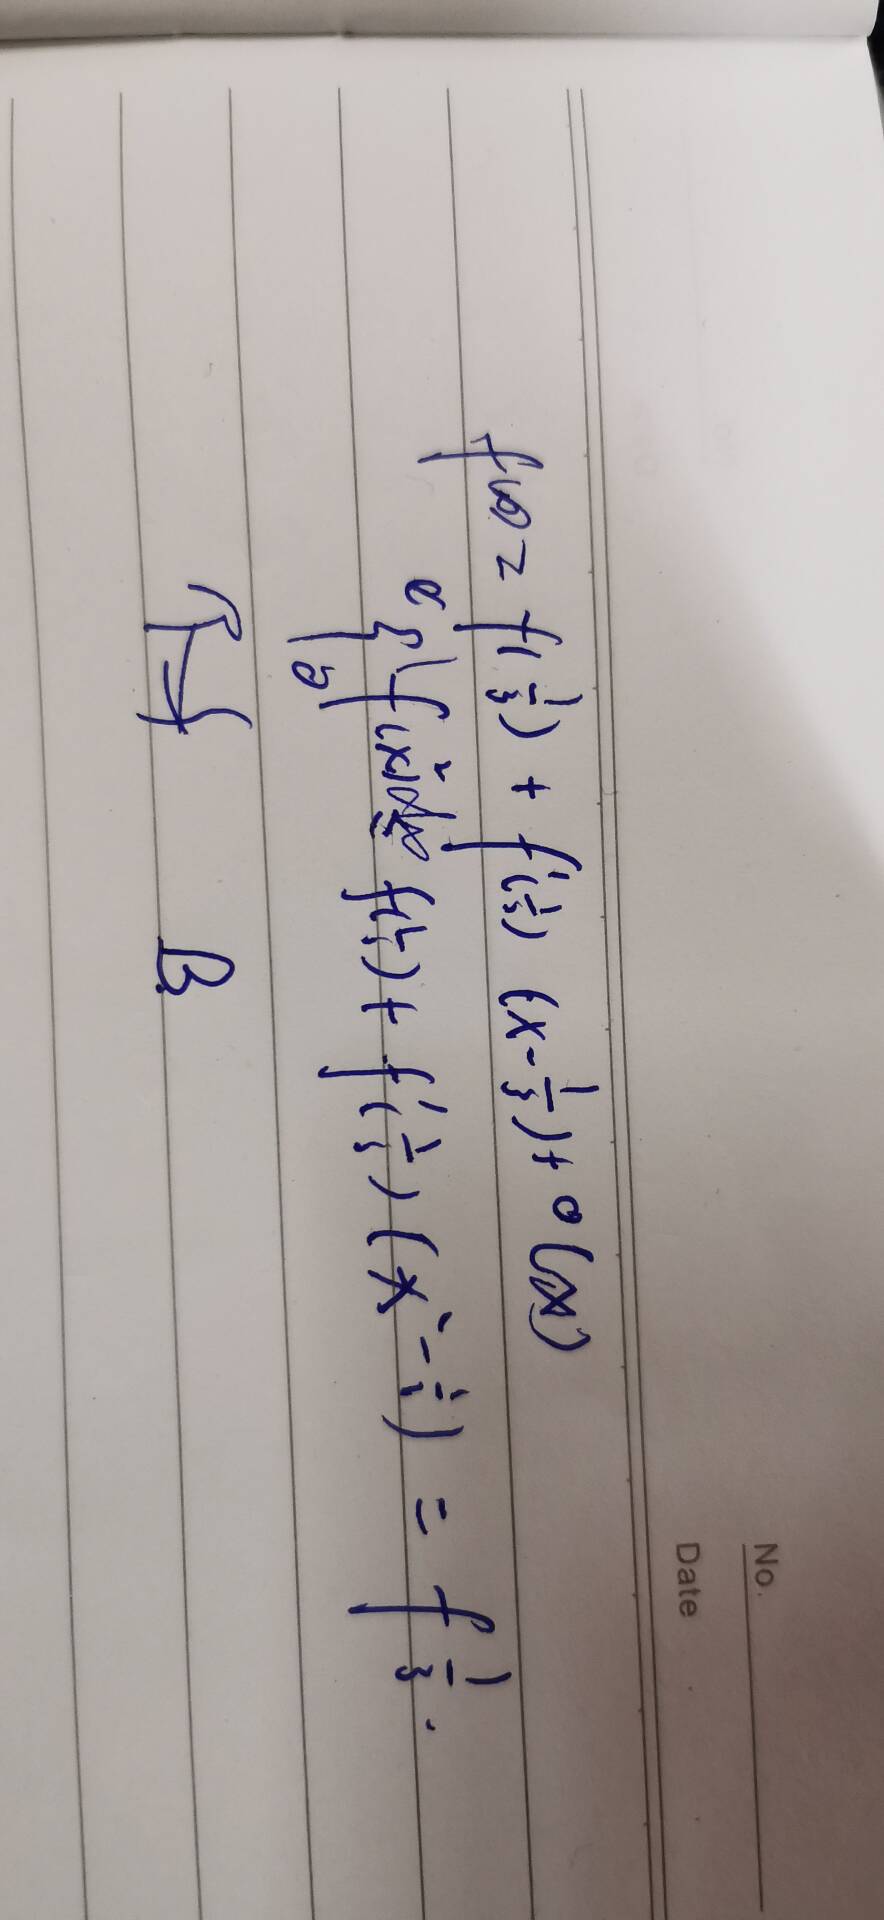 No.
Date
f(x) = f(1/3) + f'(1/3) (x - 1/3) + o(x)
∫₀¹ f(x²)dx = f(1/3) + f'(1/3) (x² - 1/3) = f 1/3.
B